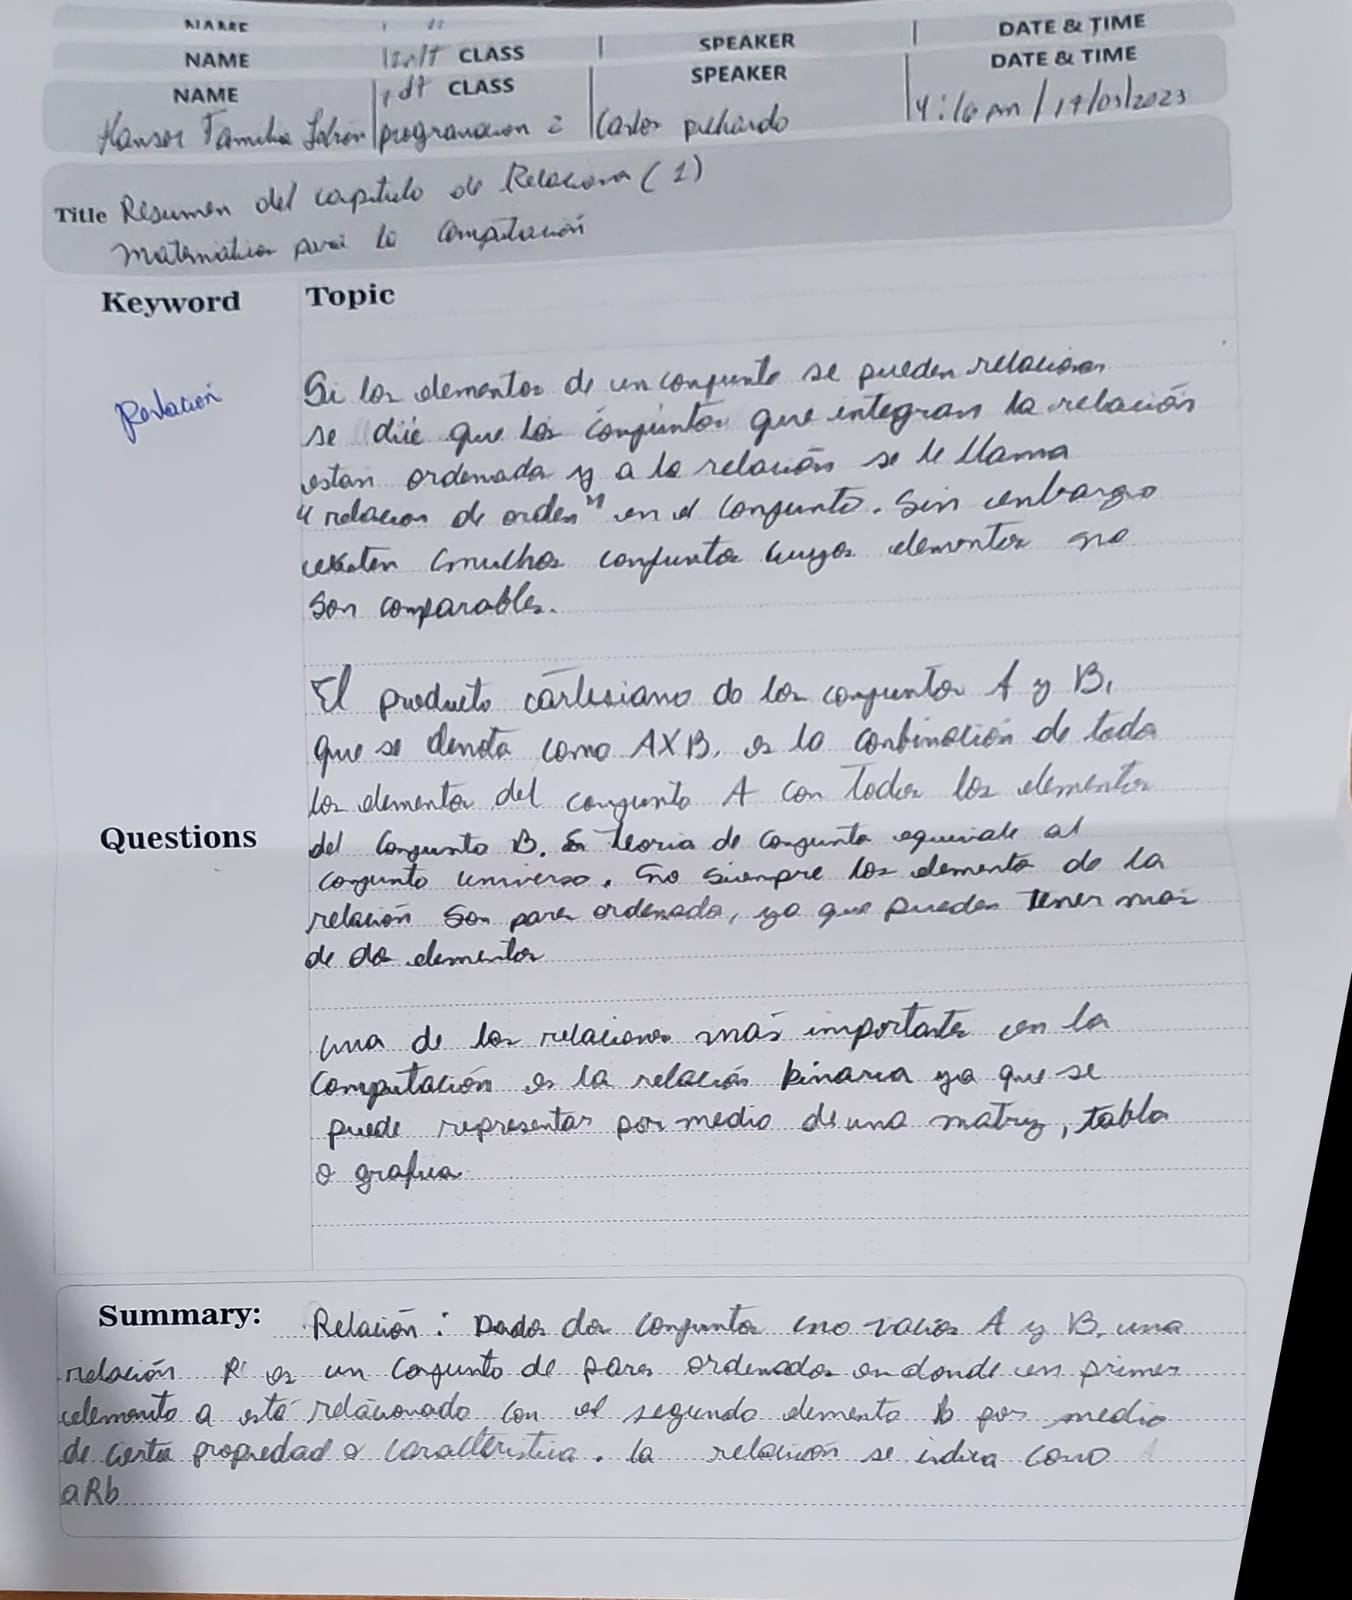 NAME CLASS SPEAKER DATE & TIME
NAME CLASS SPEAKER DATE & TIME
NAME CLASS SPEAKER DATE & TIME
Familia programacion 2 Carlos pichardo 4:10 pm / 17/03/2023
Title Resumen del capitulo de Relaciona (1)
matematica para la computación
Keyword Topic
Relación
Si los elementos de un conjunto se pueden relacionar
se dice que los conjuntos que integran la relación
estan ordenada y a la relación se le llama
"relacion de orden" en el conjunto. Sin embargo
existen muchos conjuntos cuyos elementos no
son comparables.
El producto cartesiano de los conjuntos A y B,
que se denota como AXB, es la conbinación de todos
los elementos del conjunto A con todos los elementos
Questions
del conjunto B. En teoria de conjunto equivale al
conjunto universo. no siempre los elemento de la
relación son pares ordenado, ya que pueden tener mas
de dos elementos
una de las relaciones más importante en la
computación es la relación binaria ya que se
puede representar por medio de una matriz, tabla
o grafica
Summary: Relación: Dados dos conjuntos no vacios A y B, una
relación R es un conjunto de pares ordenados en donde un primer
elemento a está relacionado con el segundo elemento b por medio
de cierta propiedad o caracteristica. la relación se indica como
aRb